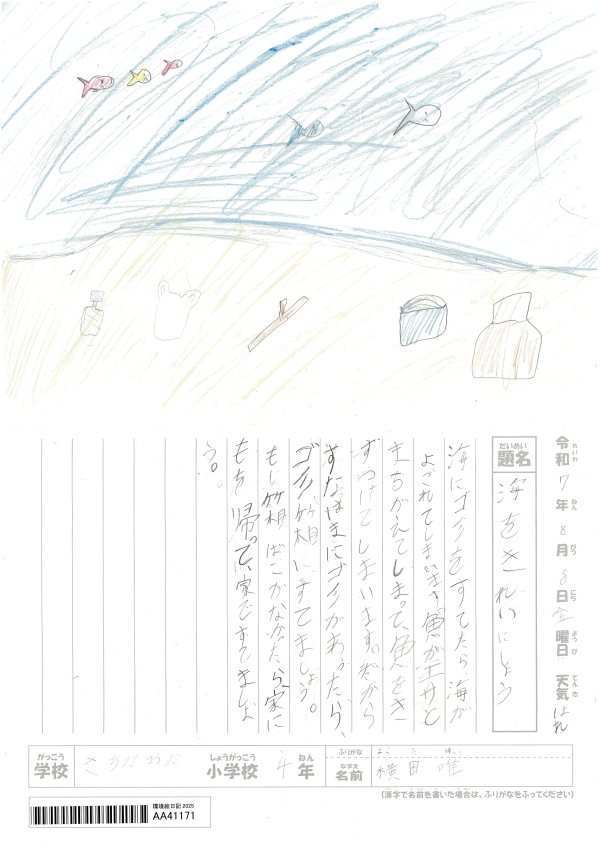 令和7年8月8日金曜日 天気 はれ
れいわ ねん がつ にち ようび てんき
だいめい
題名 海をきれいにしよう
海にゴミをすてたら海が
よごれてしまいます。魚がエサと
まちがえてしまって、魚をき
ずつけてしまいます。だから
すなはまにゴミがあったら、
ゴミ箱にすてましょう。
もし箱ばこがなかったら、家に
もち帰って、家ですてましょ
う。
がっこう しょうがっこう ねん ふりがな よこた ゆい
学校 小学校 4年 なまえ 名前 横田 唯
(漢字で名前を書いた場合は、ふりがなをふってください)
環境絵日記 2025
AA41171